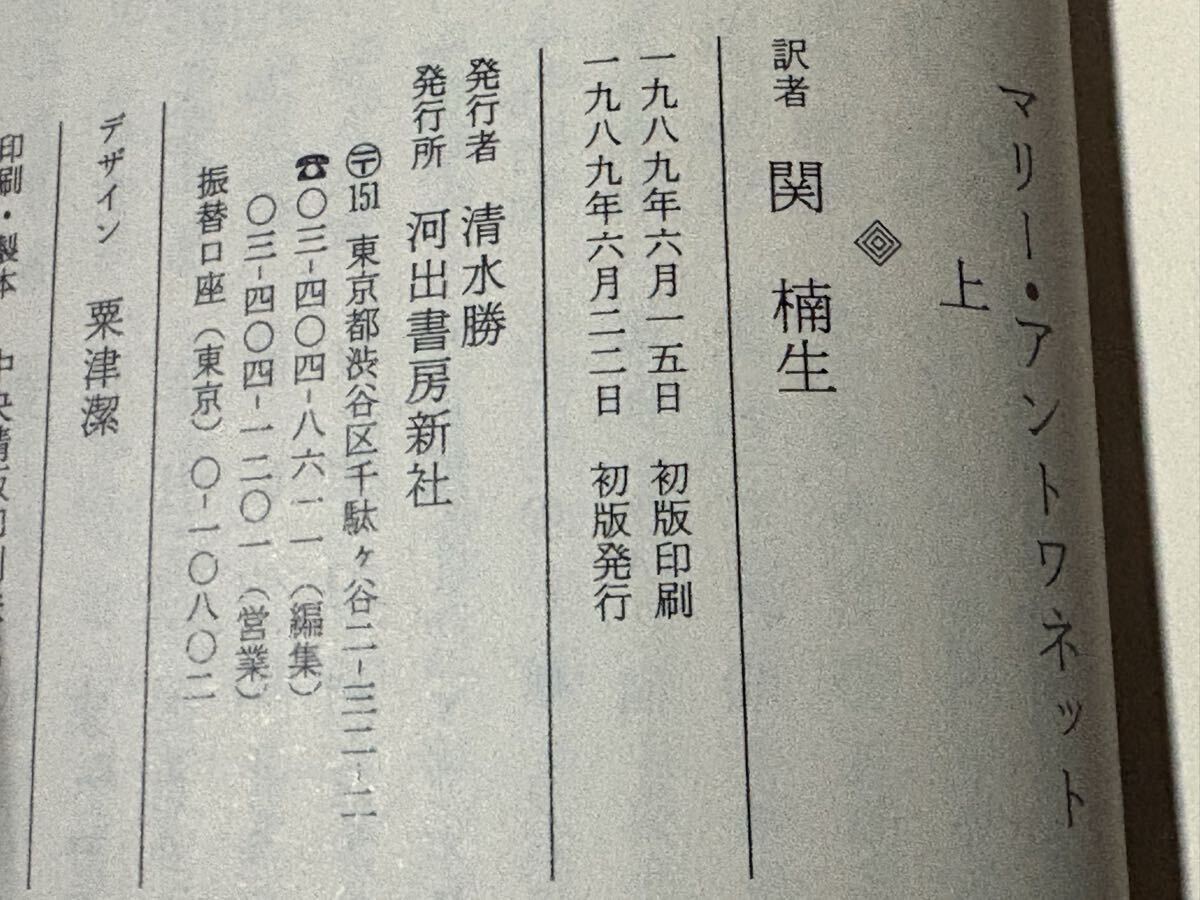 マリー・アントワネット
上
訳者 関 楠生
一九八九年六月一五日 初版印刷
一九八九年六月二二日 初版発行
発行者 清水勝
発行所 河出書房新社
〒151 東京都渋谷区千駄ヶ谷二-三二-二
☎〇三-四〇四-八六一一(編集)
〇三-四〇四-一二〇一(営業)
振替口座(東京)〇-一〇八〇二
デザイン 粟津潔
印刷・製本